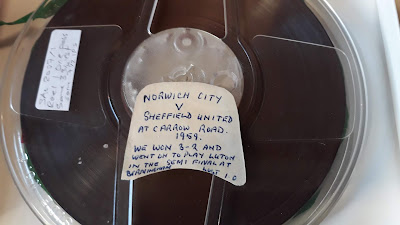 NORWICH CITY
V
SHEFFIELD UNITED
AT CARROW ROAD.
1959.
WE WON 3-2 AND
WENT ON TO PLAY LUTON
IN THE SEMI FINAL AT
BIRMINGHAM LOST 1.0